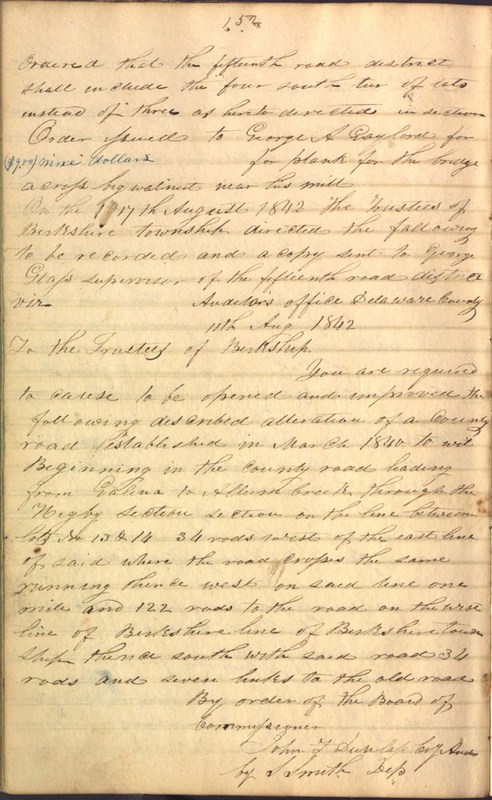 152
Ordered that the fifteenth road district
shall include the four south teer of lots
instead of three as herto directed in section
Order issued to George A Gaylord for
($9.00) nine dollars for plank for the bridge
across big walnut near his mill
On the 17th August 1842 The Trustees of
Berkshire township directed the following
to be recorded and a copy sent to George
Glass supervisor of the fifteenth road district
viz Auditors office Delaware County
11th Aug 1842
To the Trustees of Berkship
You are required
to cause to be opened and improved the
following described alteration of a County
road Established in March 1840 to wit
Beginning in the county road leading
from Galina to Allum Creek through the
Higby section section on the line between
lots No 13 & 14 34 rods west of the east line
of said where the road crosses the same
running thence west on said line one
mile and 122 rods to the road on the west
line of Berkshire line of Berkshire town
ship thence south with said road 34
rods and seven links to the old road
By order of the Board of
Commissioner
John T Dunlap Coy Aud
by S Smith Dep